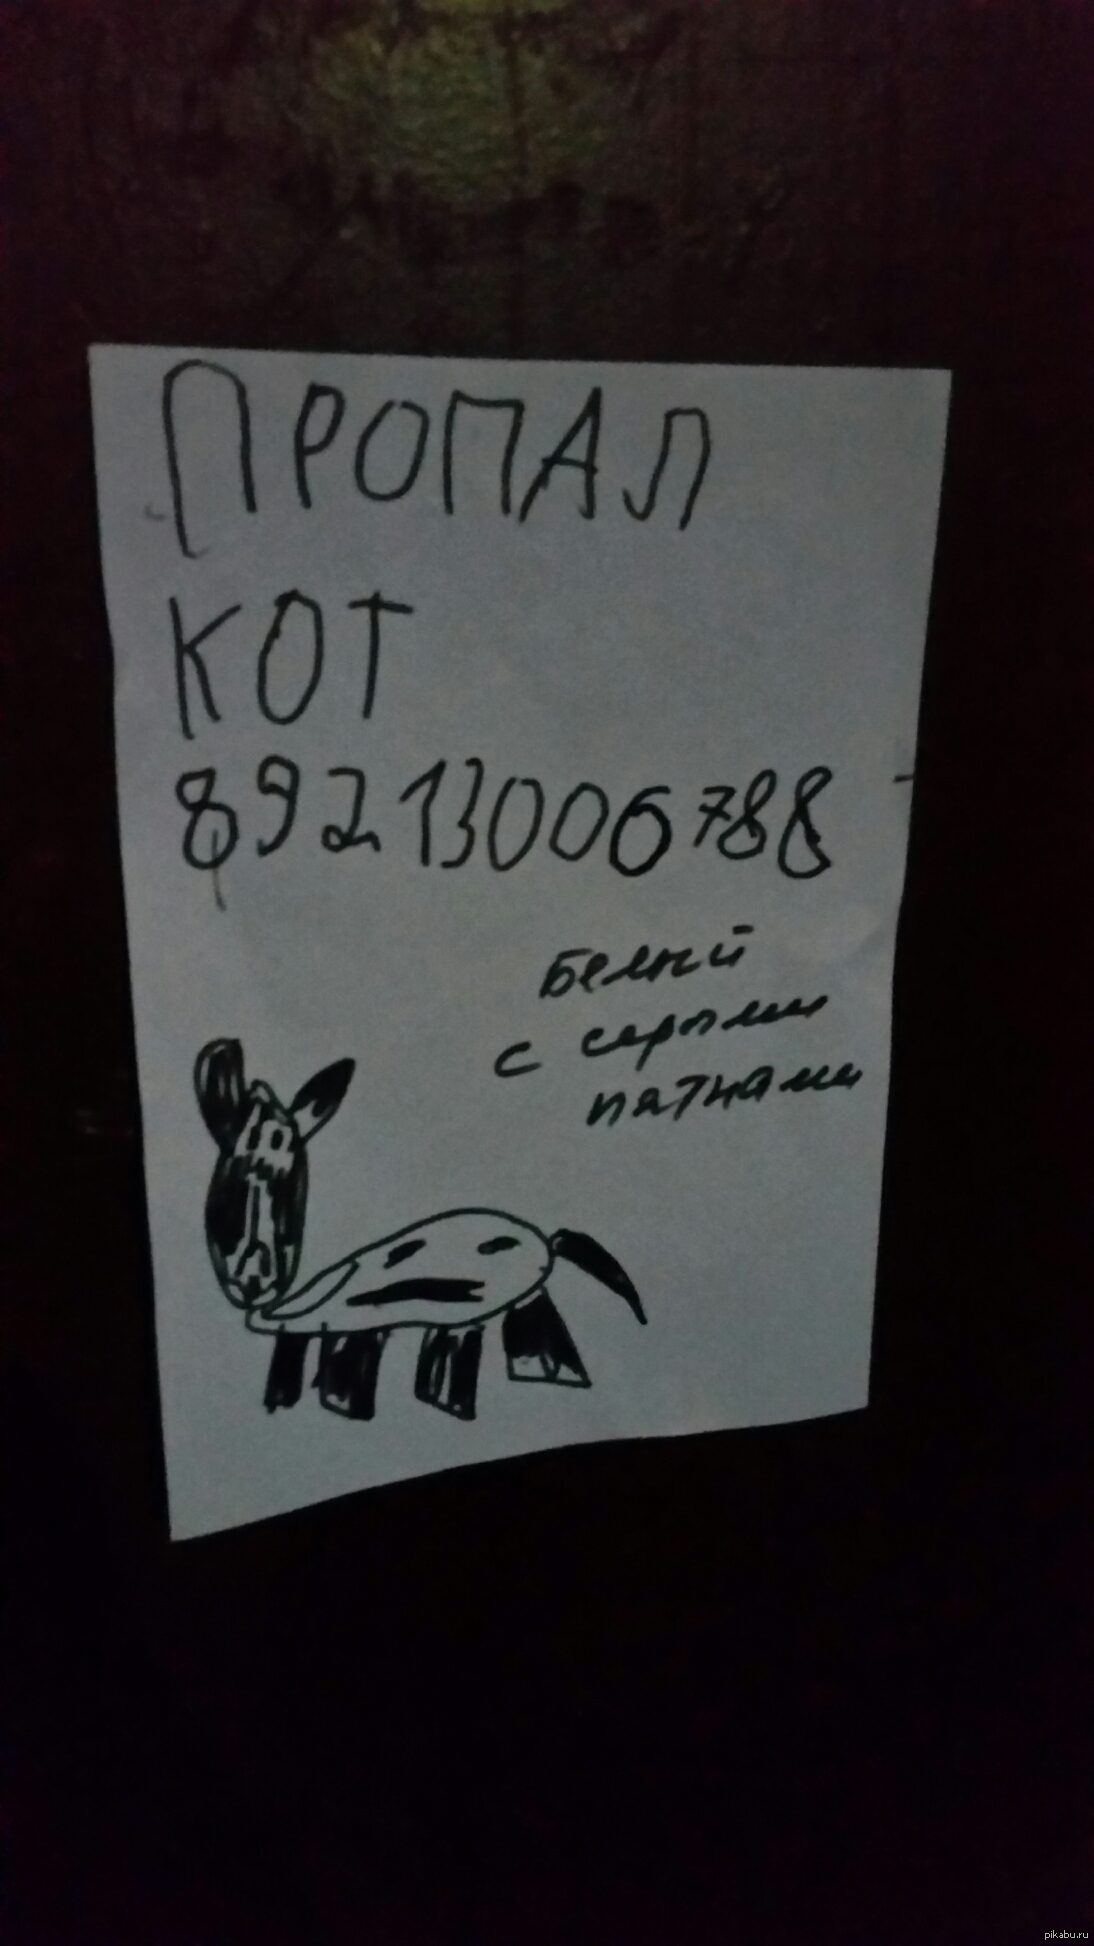 ПРОПАЛ
КОТ
89213006788
Белый
с серыми
пятнами
pikabu.ru